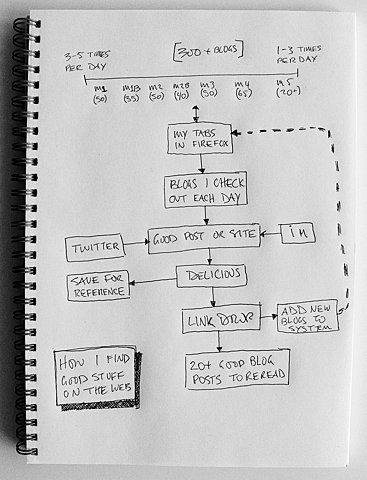 3-5 TIMES
PER DAY
[300+ BLOGS]
1-3 TIMES
PER DAY
m1 m1B m2 m2B m3 m4 m5
(50) (35) (50) (40) (50) (65) (20+)
MY TABS
IN FIREFOX
BLOGS I CHECK
OUT EACH DAY
TWITTER
GOOD POST OR SITE
IM
SAVE FOR
REFERENCE
DELICIOUS
LINK DROP
ADD NEW
BLOGS TO
SYSTEM
HOW I FIND
GOOD STUFF
ON THE WEB
20+ GOOD BLOG
POSTS TO REREAD